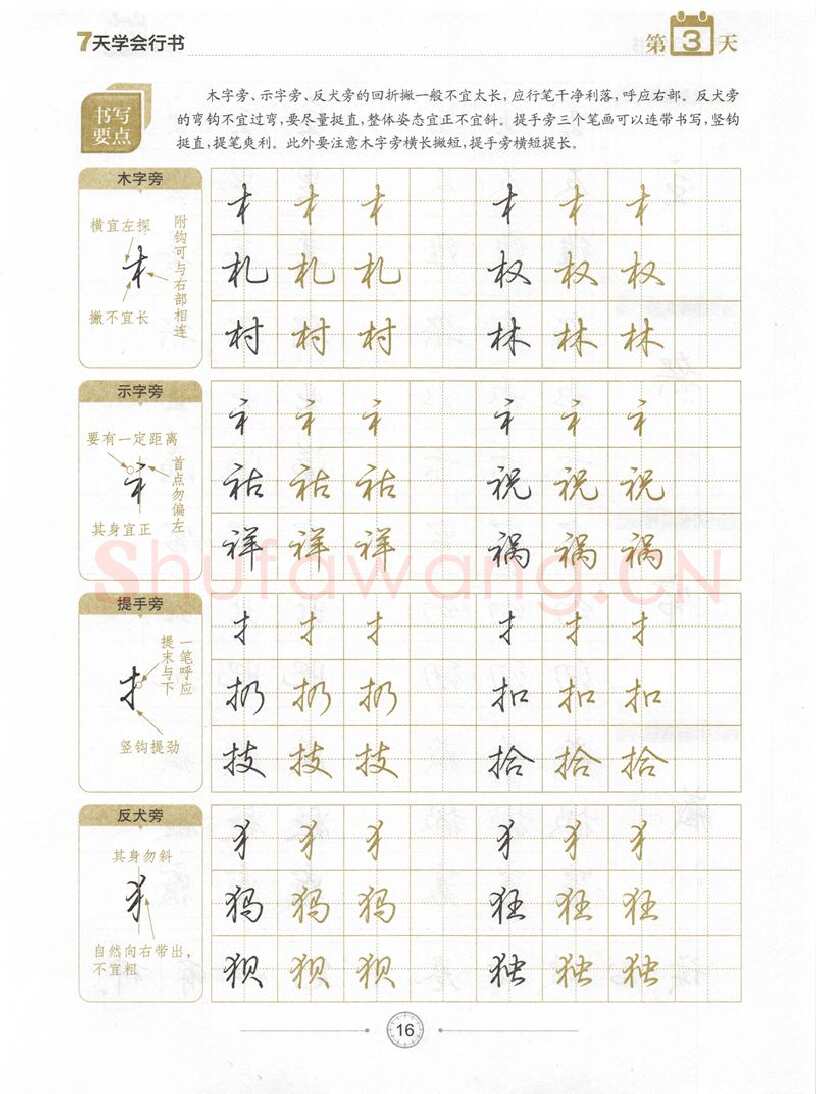 7天学会行书
第3天
书写
要点
木字旁、示字旁、反犬旁的回折撇一般不宜太长，应行笔干净利落，呼应右部。反犬旁
的弯钩不宜过弯，要尽量挺直，整体姿态宜正不宜斜。提手旁三个笔画可以连带书写，竖钩
挺直，提笔爽利。此外要注意木字旁横长撇短，提手旁横短提长。
木字旁
横宜左探
附钩可与右部相连
撇不宜长
木 木 木 木 木 木
札 札 札 权 权 权
村 村 村 林 林 林
示字旁
要有一定距离
首点勿偏左
其身宜正
礻 礻 礻 礻 礻 礻
祜 祜 祜 祝 祝 祝
祥 祥 祥 祸 祸 祸
Shufawang.CN
提手旁
一笔呼应
提末与下
竖钩提劲
扌 扌 扌 扌 扌 扌
扔 扔 扔 扣 扣 扣
技 技 技 拾 拾 拾
反犬旁
其身勿斜
自然向右带出，
不宜粗
犭 犭 犭 犭 犭 犭
犸 犸 犸 狂 狂 狂
狈 狈 狈 独 独 独
16